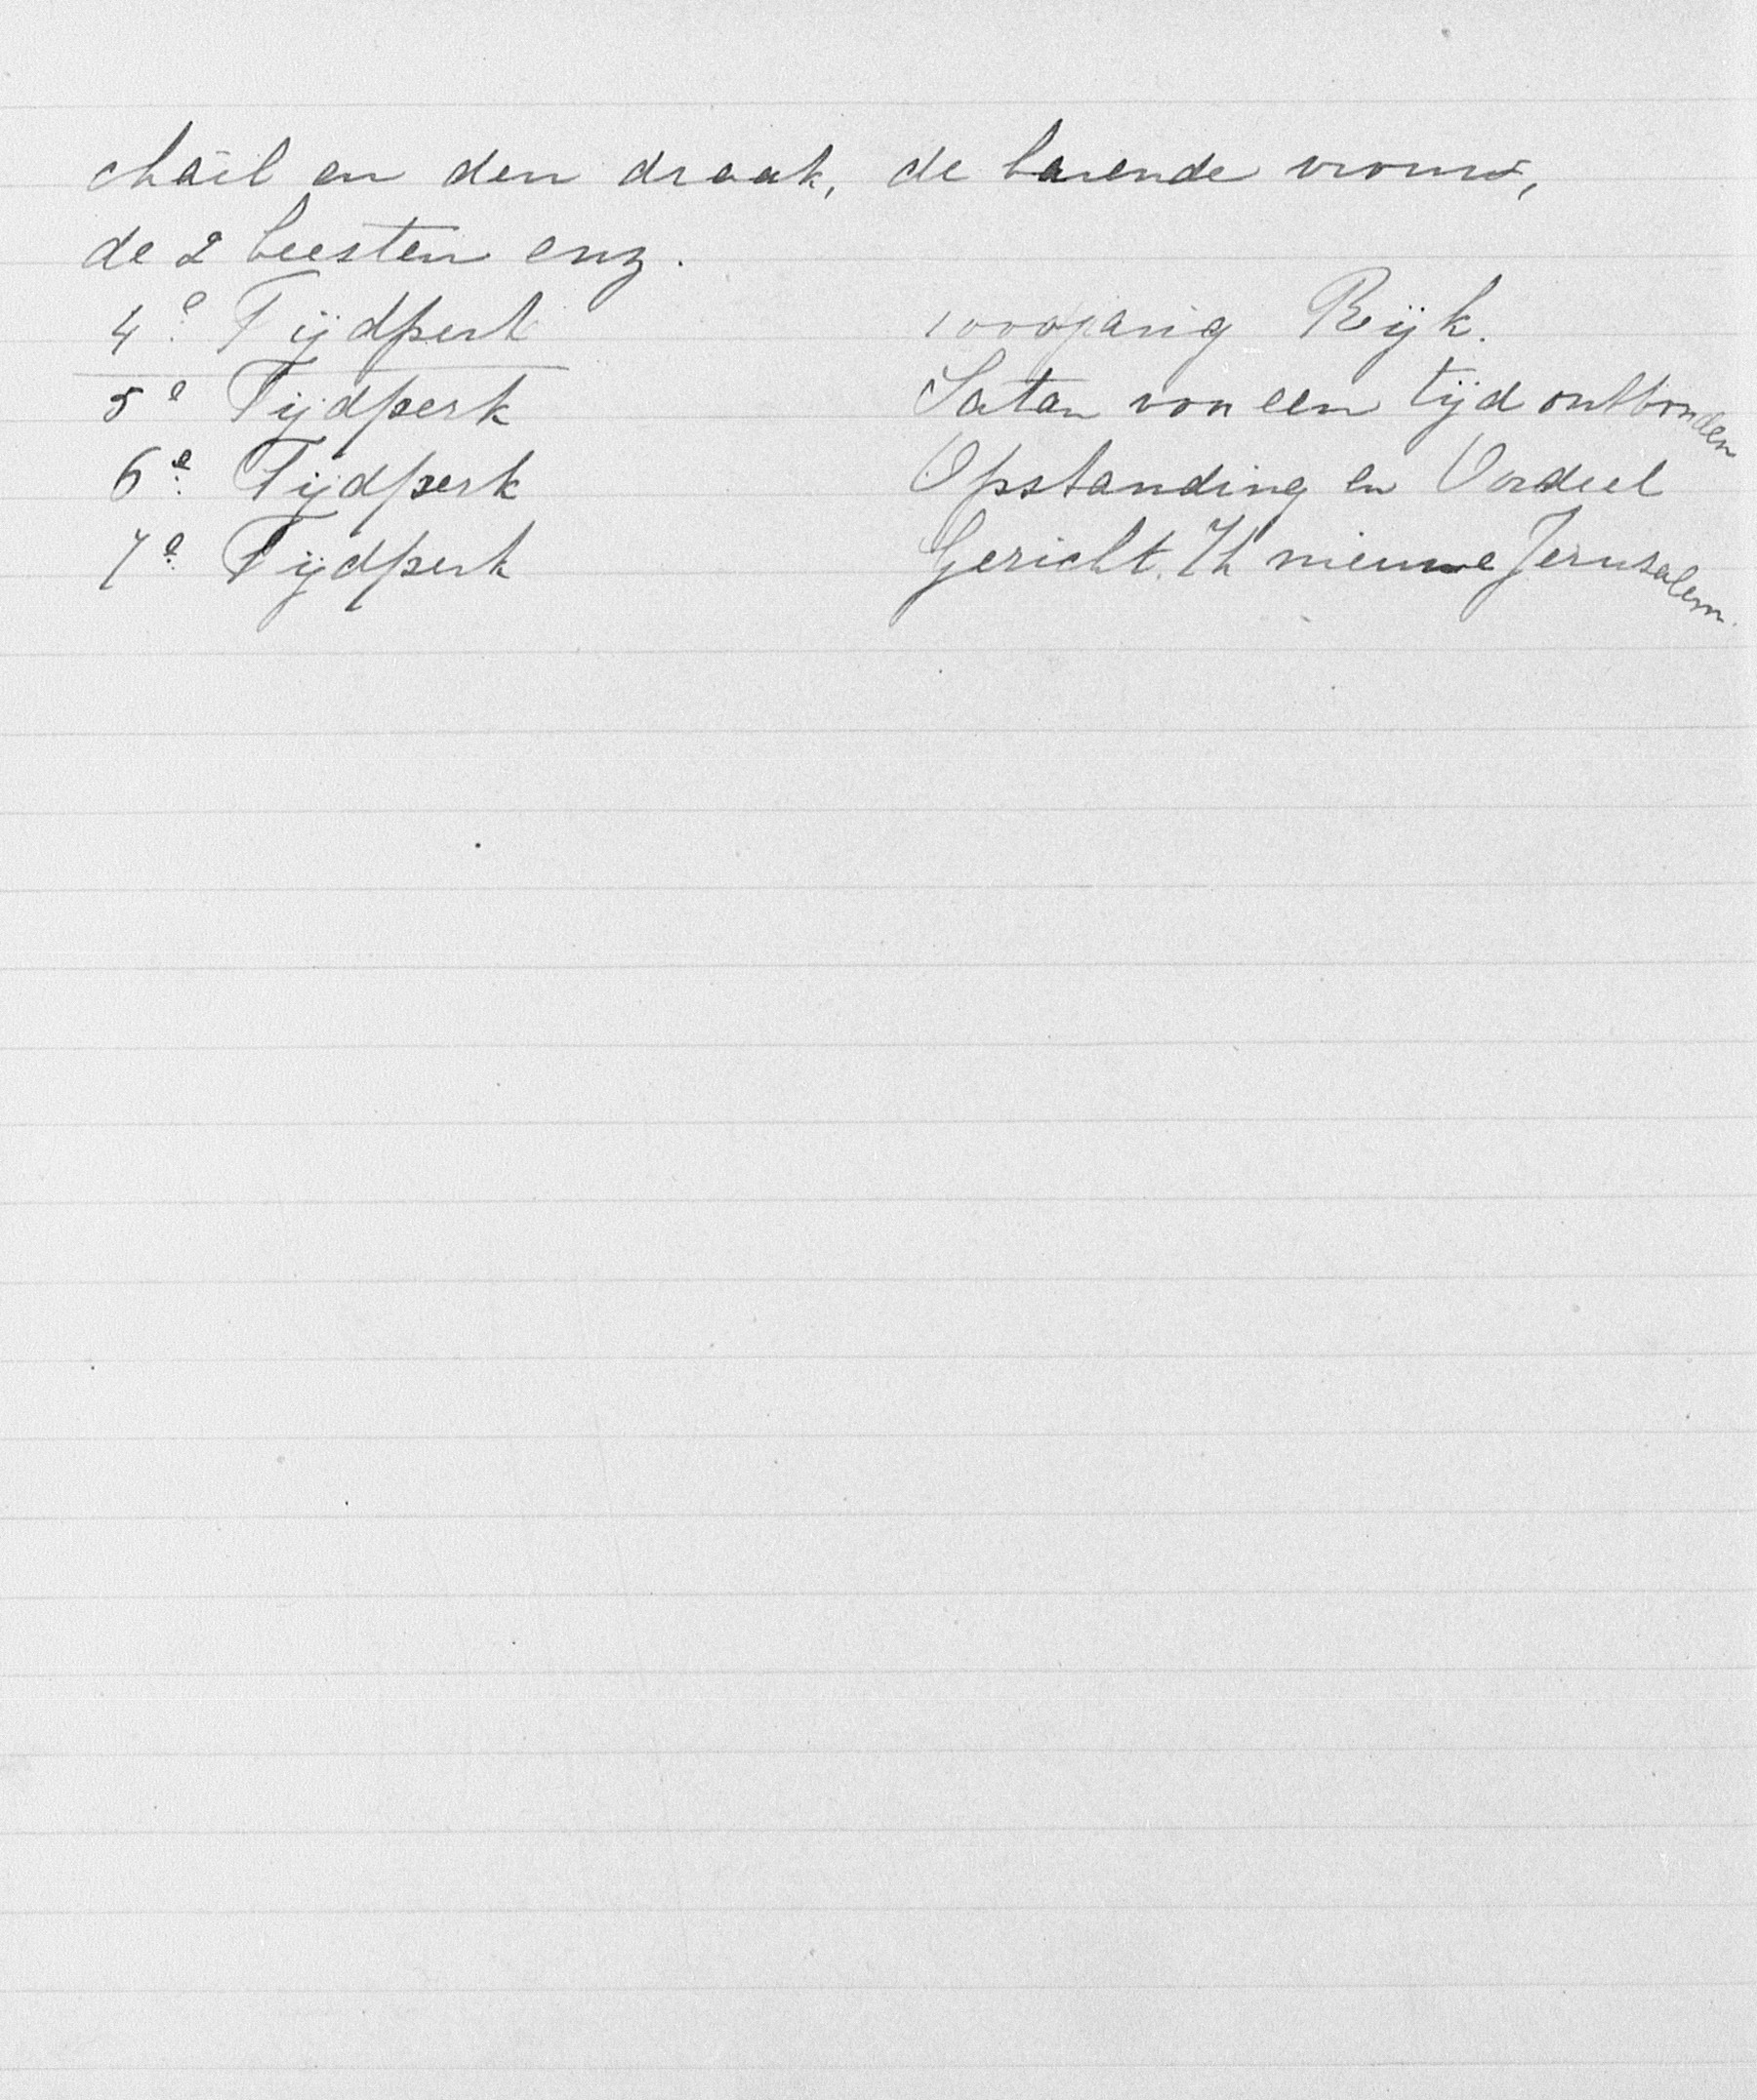 chaël en den draak, de barende vrouw,
de 2 beesten enz.
4e Tijdperk 1000jarig Rijk.
5e Tijdperk Satan voor een tijd ontbonden
6e Tijdperk Opstanding en Oordeel
7e Tijdperk Gericht. 't nieuwe Jerusalem.